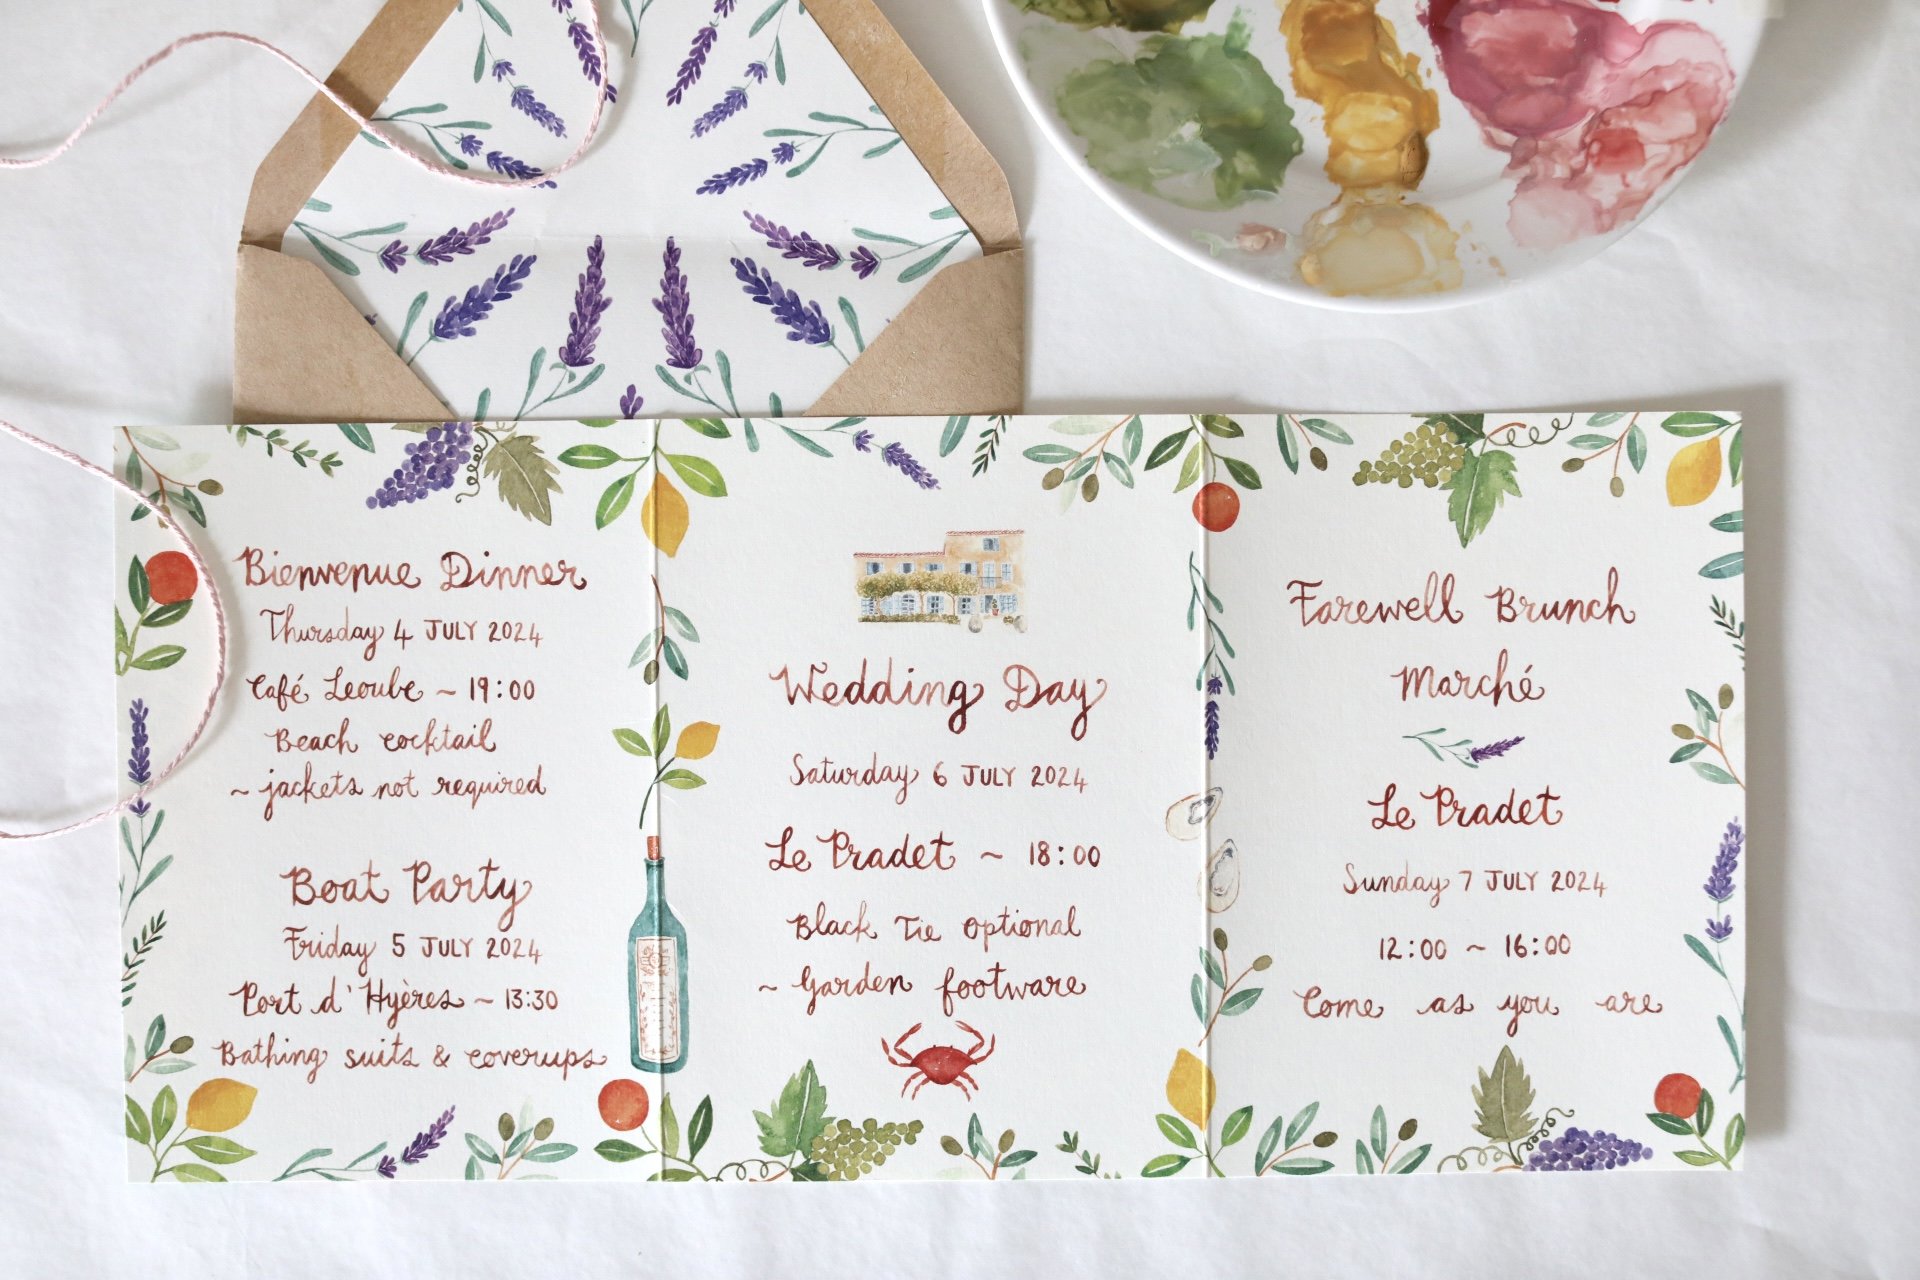 Bienvenue Dinner
Thursday 4 JULY 2024
Café Leoube ~ 19:00
Beach cocktail
~ jackets not required
Boat Party
Friday 5 JULY 2024
Port d'Hyères ~ 13:30
Bathing suits & coverups
Wedding Day
Saturday 6 JULY 2024
Le Pradet ~ 18:00
Black Tie Optional
~ Garden footware
Farewell Brunch
Marché
Le Pradet
Sunday 7 JULY 2024
12:00 ~ 16:00
Come as you are